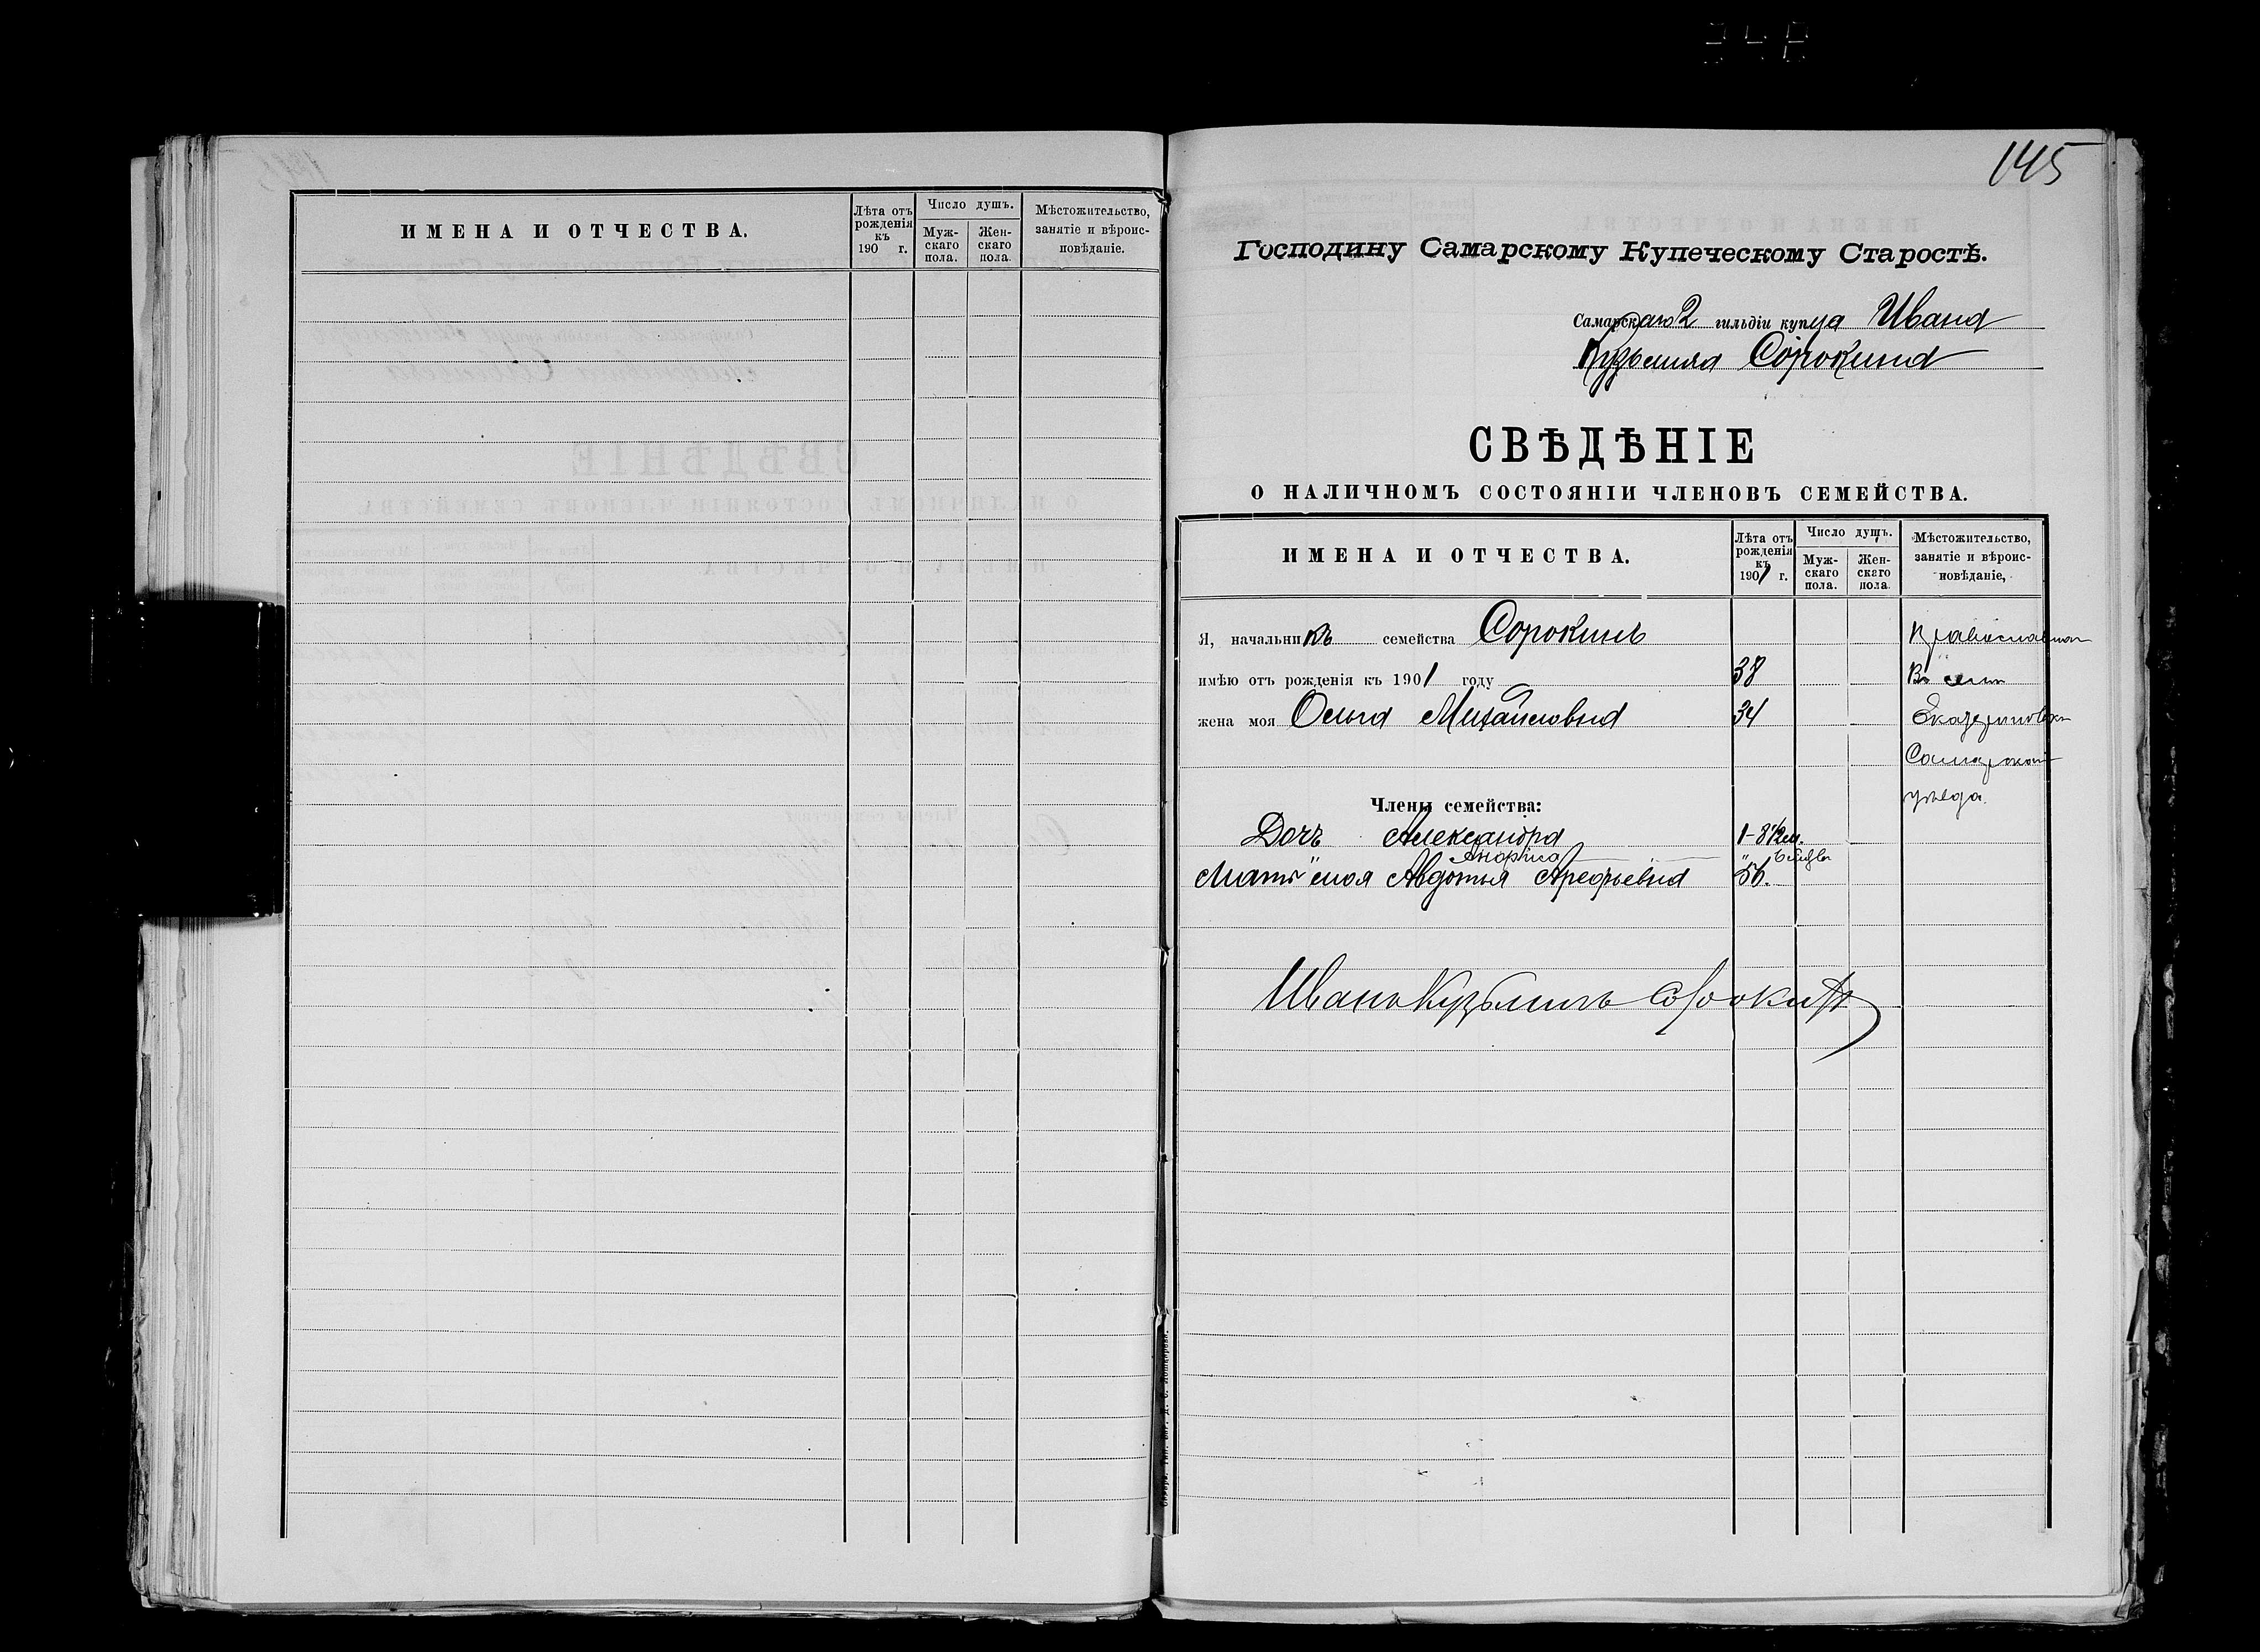 ИМЕНА И ОТЧЕСТВА.
Лѣта отъ рожденія къ 190 г.
Число душъ.
Муж-скаго пола.
Жен-скаго пола.
Мѣстожительство, занятіе и вѣроис-повѣданіе.
145
Господину Самарскому Купеческому Старостѣ.
Самарскаго 2 гильдіи купца Ивана
Кузьмина Сорокина
СВѢДѢНІЕ
О НАЛИЧНОМЪ СОСТОЯНІИ ЧЛЕНОВЪ СЕМЕЙСТВА.
ИМЕНА И ОТЧЕСТВА.
Лѣта отъ рожденія къ 1901 г.
Число душъ.
Муж-скаго пола.
Жен-скаго пола.
Мѣстожительство, занятіе и вѣроис-повѣданіе,
Я, начальникъ семейства Сорокинъ
имѣю отъ рожденія къ 1901 году 38
жена моя Ольга Михайловна 34
Екатериновка
Самарскаго
уѣзда.
Члены семейства:
Дочь Александра
Мать моя Авдотья Арефьевна 56.
Иванъ Кузьминъ Сорокинъ